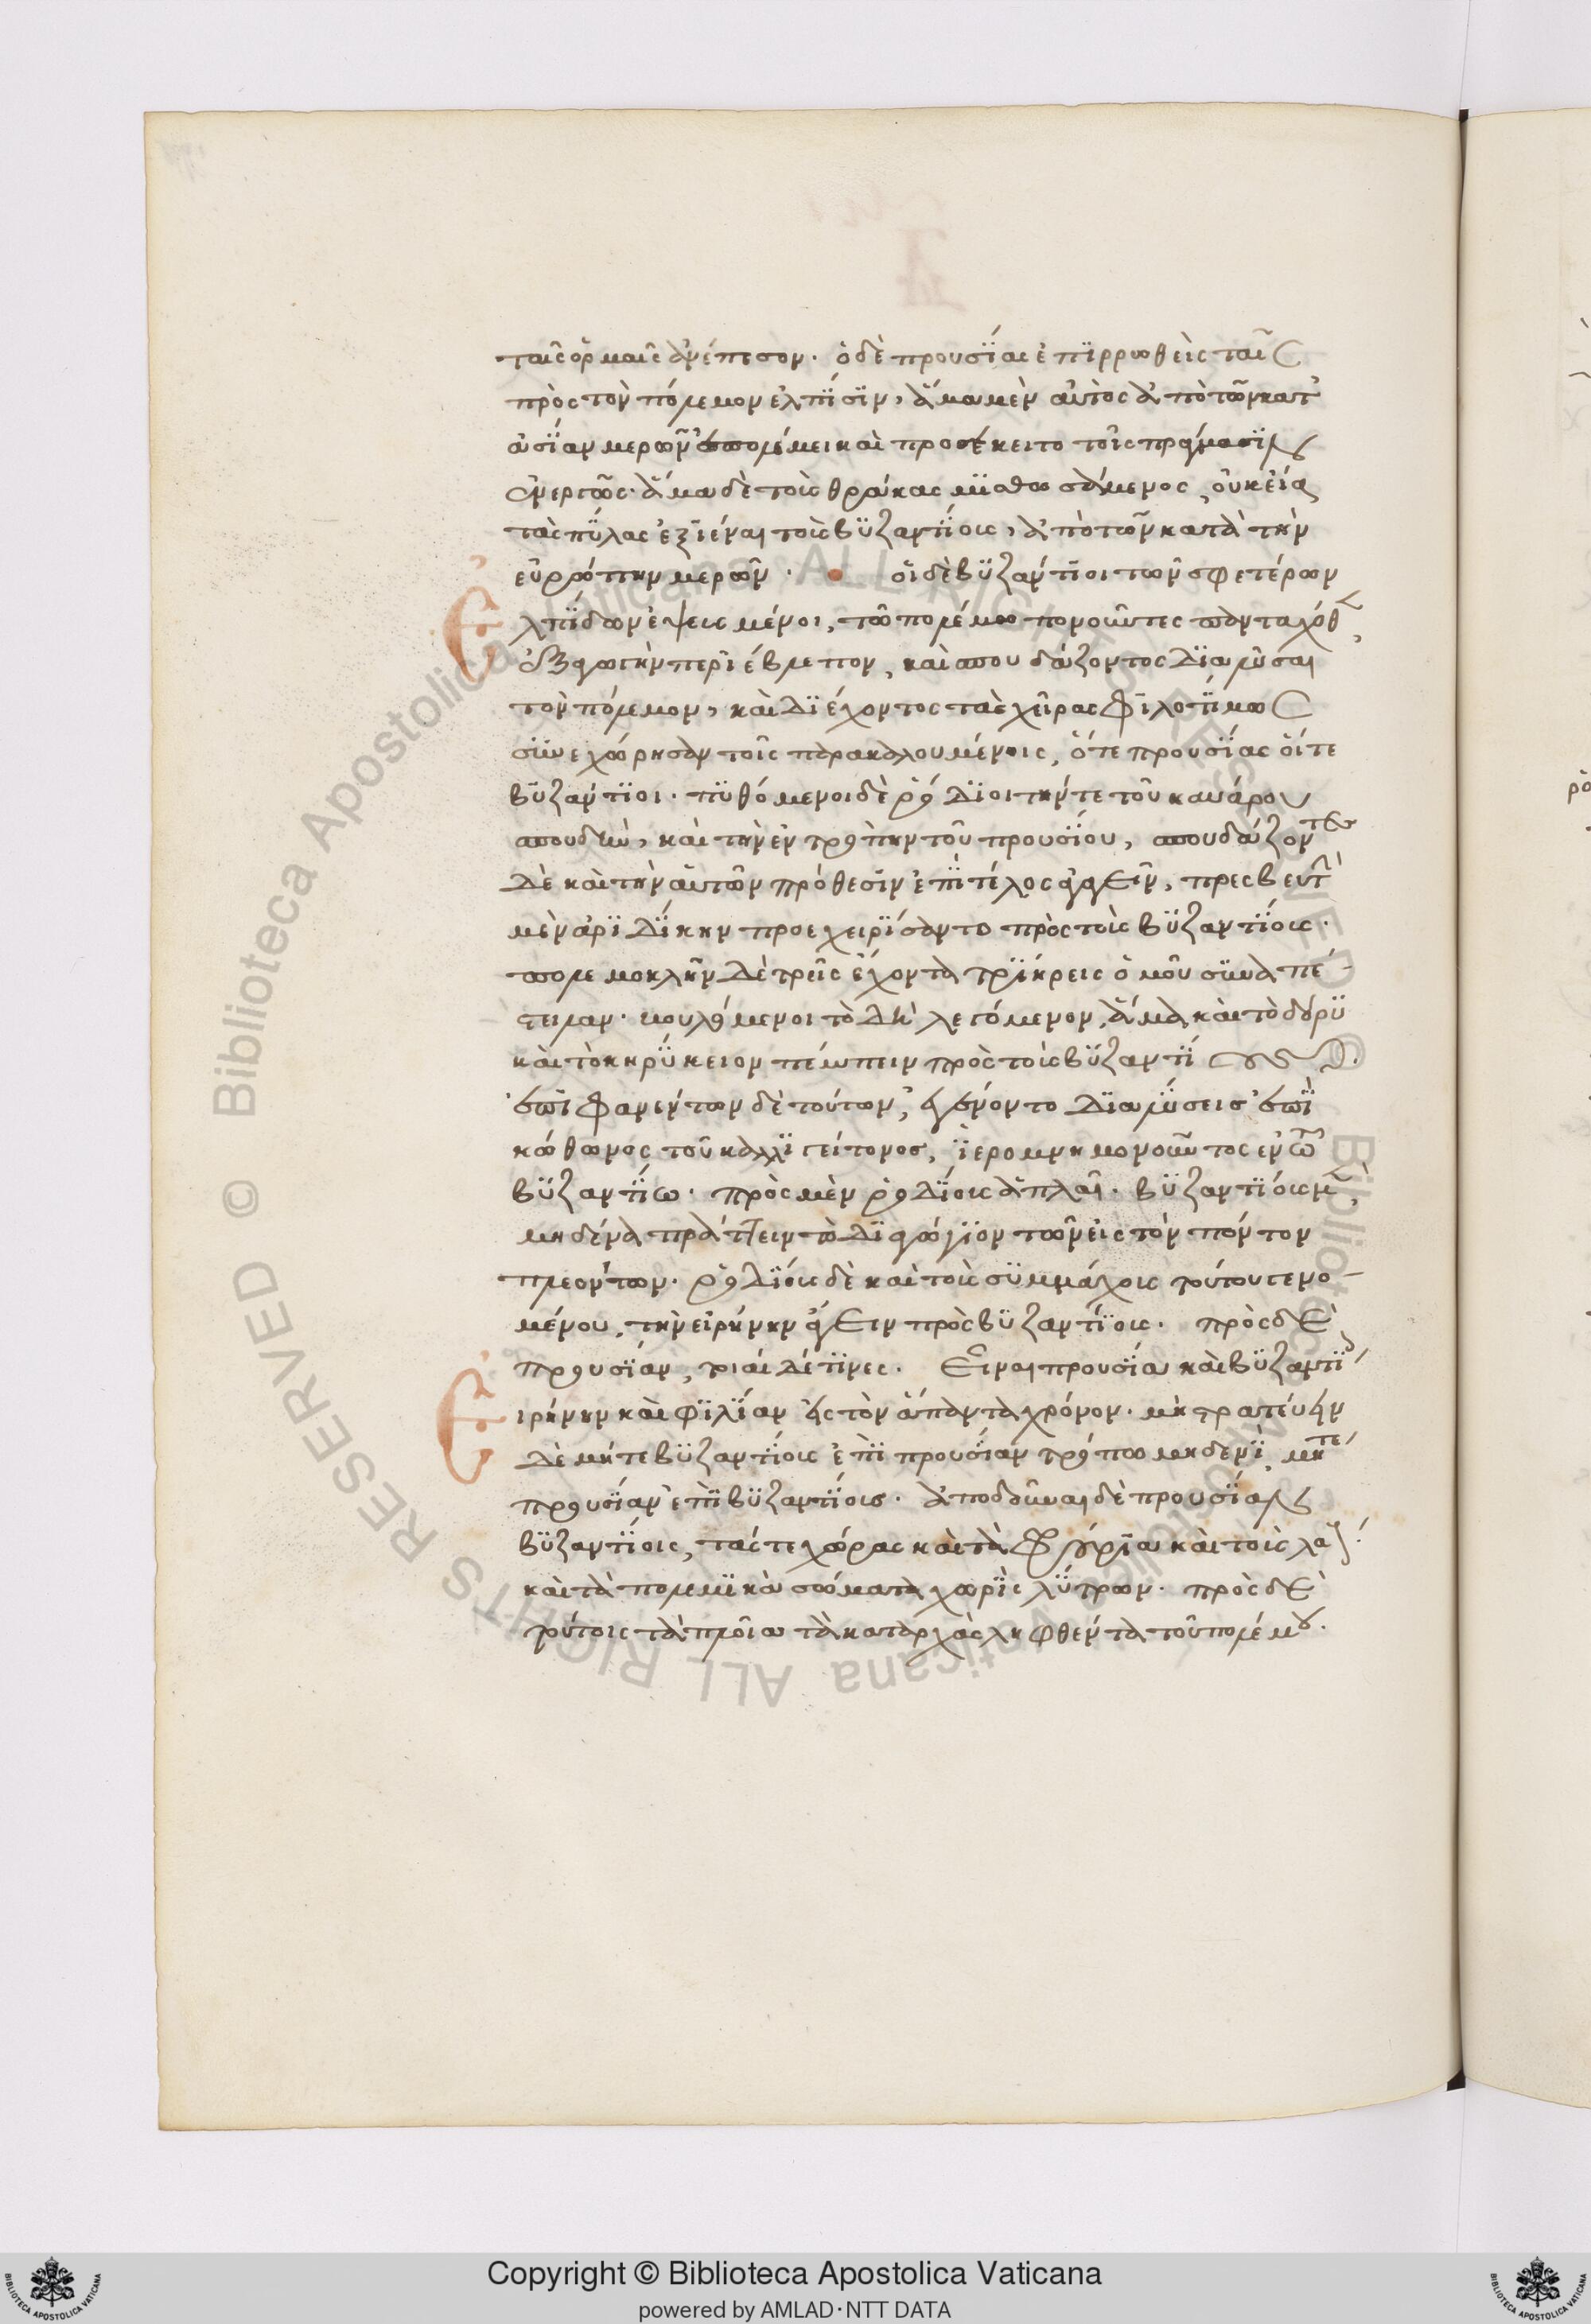 ταῖς ὁρμαῖς ἀνέπεσον. ὁ δὲ προυσίας ἐπιρρωσθεὶς ταῖς
πρὸς τὸν πόλεμον ἐλπίσιν, ἅμα μὲν αὐτὸς ἀπὸ τῶν κατ'
ἀσίαν μερῶν ἐπολέμει καὶ προσέκειτο τοῖς πράγμασιν
ἐνεργῶς. ἅμα δὲ τοὺς θρᾷκας μισθωσάμενος, οὐκ εἴα
τὰς πύλας ἐξιέναι τοὺς βυζαντίους, ἀπὸ τῶν κατὰ τὴν
εὐρώπην μερῶν. οἱ δὲ βυζάντιοι τῶν σφετέρων
ἐλπίδων ἐψευσμένοι, τῷ πολέμῳ πονοῦντες πανταχόθεν,
ἐξαγωγὴν περιέβλεπον, καὶ σπουδάζοντος διαλῦσαι
τὸν πόλεμον, καὶ διέχοντος τὰς χεῖρας φιλοτίμως
συνεχώρησαν τοῖς παρακαλουμένοις, ὅτε προυσίας οἵ τε
βυζάντιοι. πυθόμενοι δὲ ῥόδιοι τήν τε τοῦ καυάρου
σπουδὴν, καὶ τὴν ἐντροπὴν τοῦ προυσίου, σπουδάζοντες
δὲ καὶ τὴν αὐτῶν πρόθεσιν ἐπὶ τέλος ἀγαγεῖν, πρεσβευτὴν
μὲν ἀριδίκην προεχειρίσαντο πρὸς τοὺς βυζαντίους.
πολεμοκλῆν δὲ τρεῖς ἔχοντα τριήρεις ὁμοῦ συναπέ-
στειλαν. βουλόμενοι τὸ δὴ λεγόμενον, ἅμα καὶ τὸ δόρυ
καὶ τὸ κηρύκειον πέμπειν πρὸς τοὺς βυζαντίους.
ἐπιφανέντων δὲ τούτων, ἐγένοντο διαλύσεις ἐπὶ
κώθωνος τοῦ καλλιγείτονος, ἱερομνημονοῦντος ἐν τῷ
βυζαντίῳ. πρὸς μὲν ῥοδίους ἁπλαῖ. βυζαντίους μὲν
μηδένα πράττειν τὸ διαγώγιον τῶν εἰς τὸν πόντον
πλεόντων. ῥοδίους δὲ καὶ τοὺς συμμάχους τούτου γενο-
μένου, τὴν εἰρήνην ἄγειν πρὸς βυζαντίους. πρὸς δὲ
προυσίαν, τοιαίδέ τινες. Εἶναι προυσίᾳ καὶ βυζαντίοις
εἰρήνην καὶ φιλίαν εἰς τὸν ἅπαντα χρόνον. μὴ στρατεύειν
δὲ μήτε βυζαντίους ἐπὶ προυσίαν τρόπῳ μηδενὶ, μήτε
προυσίαν ἐπὶ βυζαντίους. ἀποδοῦναι δὲ προυσίαν
βυζαντίοις, τάς τε χώρας καὶ τὰ φρούρια καὶ τοὺς λαοὺς
καὶ τὰ πολεμικὰ σώματα χωρὶς λύτρων. πρὸς δὲ
τούτοις τὰ πλοῖα τὰ καταρχὰς ληφθέντα τοῦ πολέμου.
Copyright © Biblioteca Apostolica Vaticana
powered by AMLAD·NTT DATA